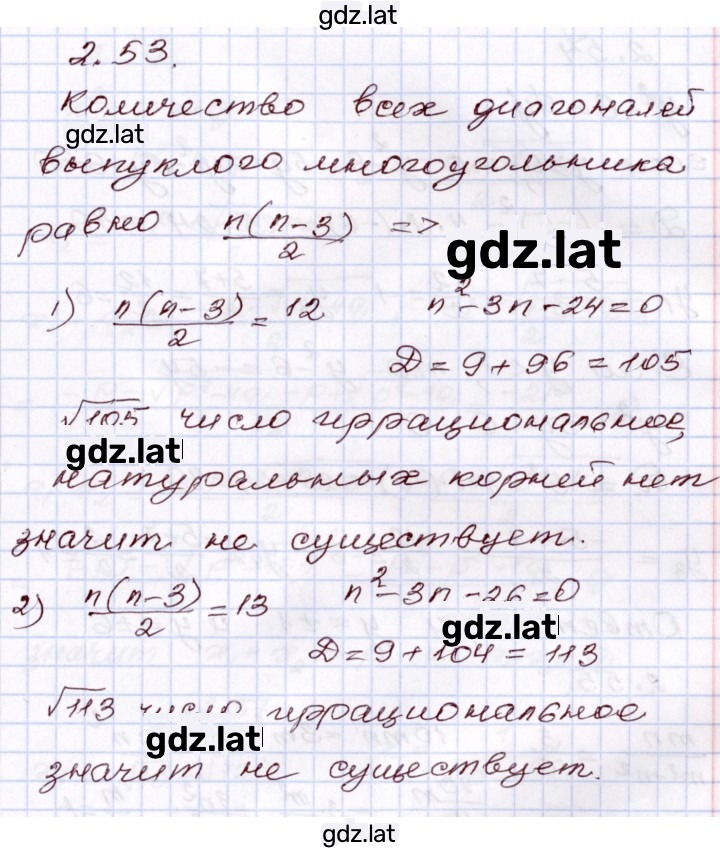 gdz.lat
2.53.
Количество всех диагоналей
gdz.lat
выпуклого многоугольника
равно n(n-3)/2 =>
gdz.lat
1) n(n-3)/2 = 12 n²-3n-24=0
Д=9+96=105
√105 число иррациональное,
gdz.lat
натуральных корней нет
значит не существует.
2) n(n-3)/2 = 13 n²-3n-26=0
gdz.lat
Д=9+104=113
√113 число иррациональное
gdz.lat
значит не существует.
gdz.lat